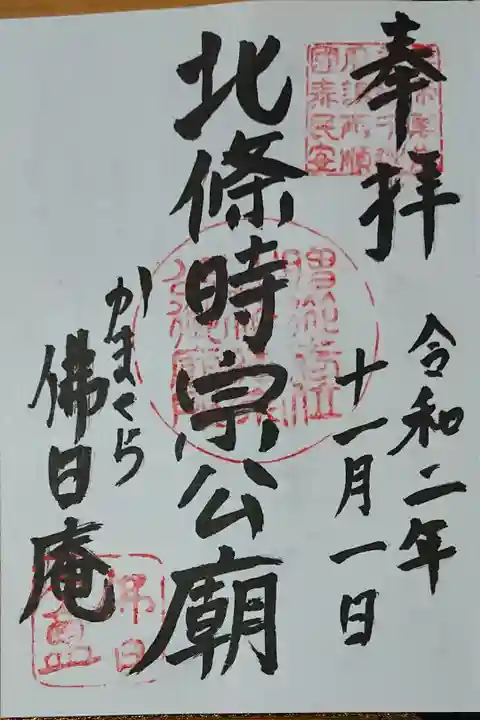 奉拝
令和二年
十一月一日
北條時宗公廟
かまくら
佛日庵